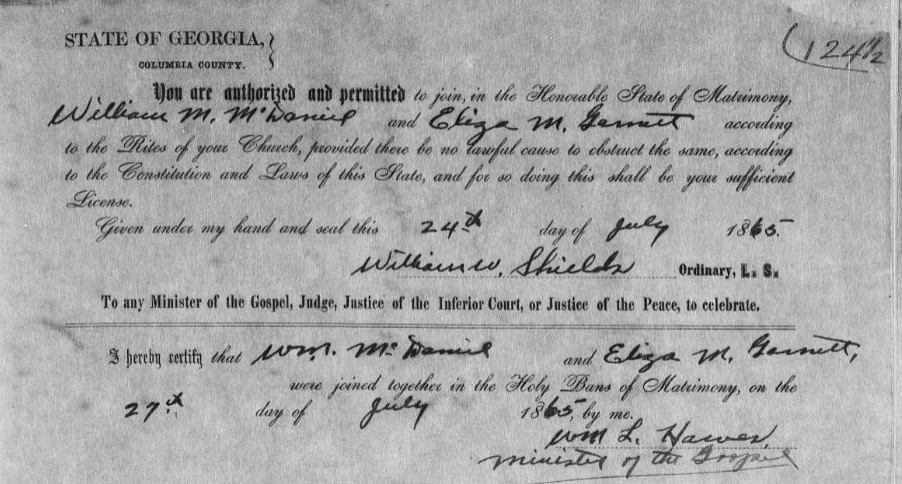 STATE OF GEORGIA,
124½
COLUMBIA COUNTY.
You are authorized and permitted to join, in the Honorable State of Matrimony,
William M. McDaniel and Eliza M. Garnett according
to the Rites of your Church, provided there be no lawful cause to obstruct the same, according
to the Constitution and Laws of this State, and for so doing this shall be your sufficient
License.
Given under my hand and seal this 24th day of July 1865.
William W. Shields Ordinary, L. S.
To any Minister of the Gospel, Judge, Justice of the Inferior Court, or Justice of the Peace, to celebrate.
I hereby certify that Wm. McDaniel and Eliza M. Garnett,
were joined together in the Holy Bans of Matrimony, on the
27th day of July 1865, by me.
Wm L. Hawes,
Minister of the Gospel